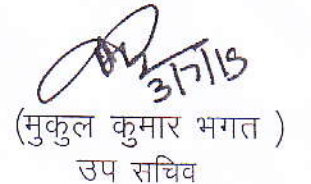 3/7/15
(मुकुल कुमार भगत )
उप सचिव